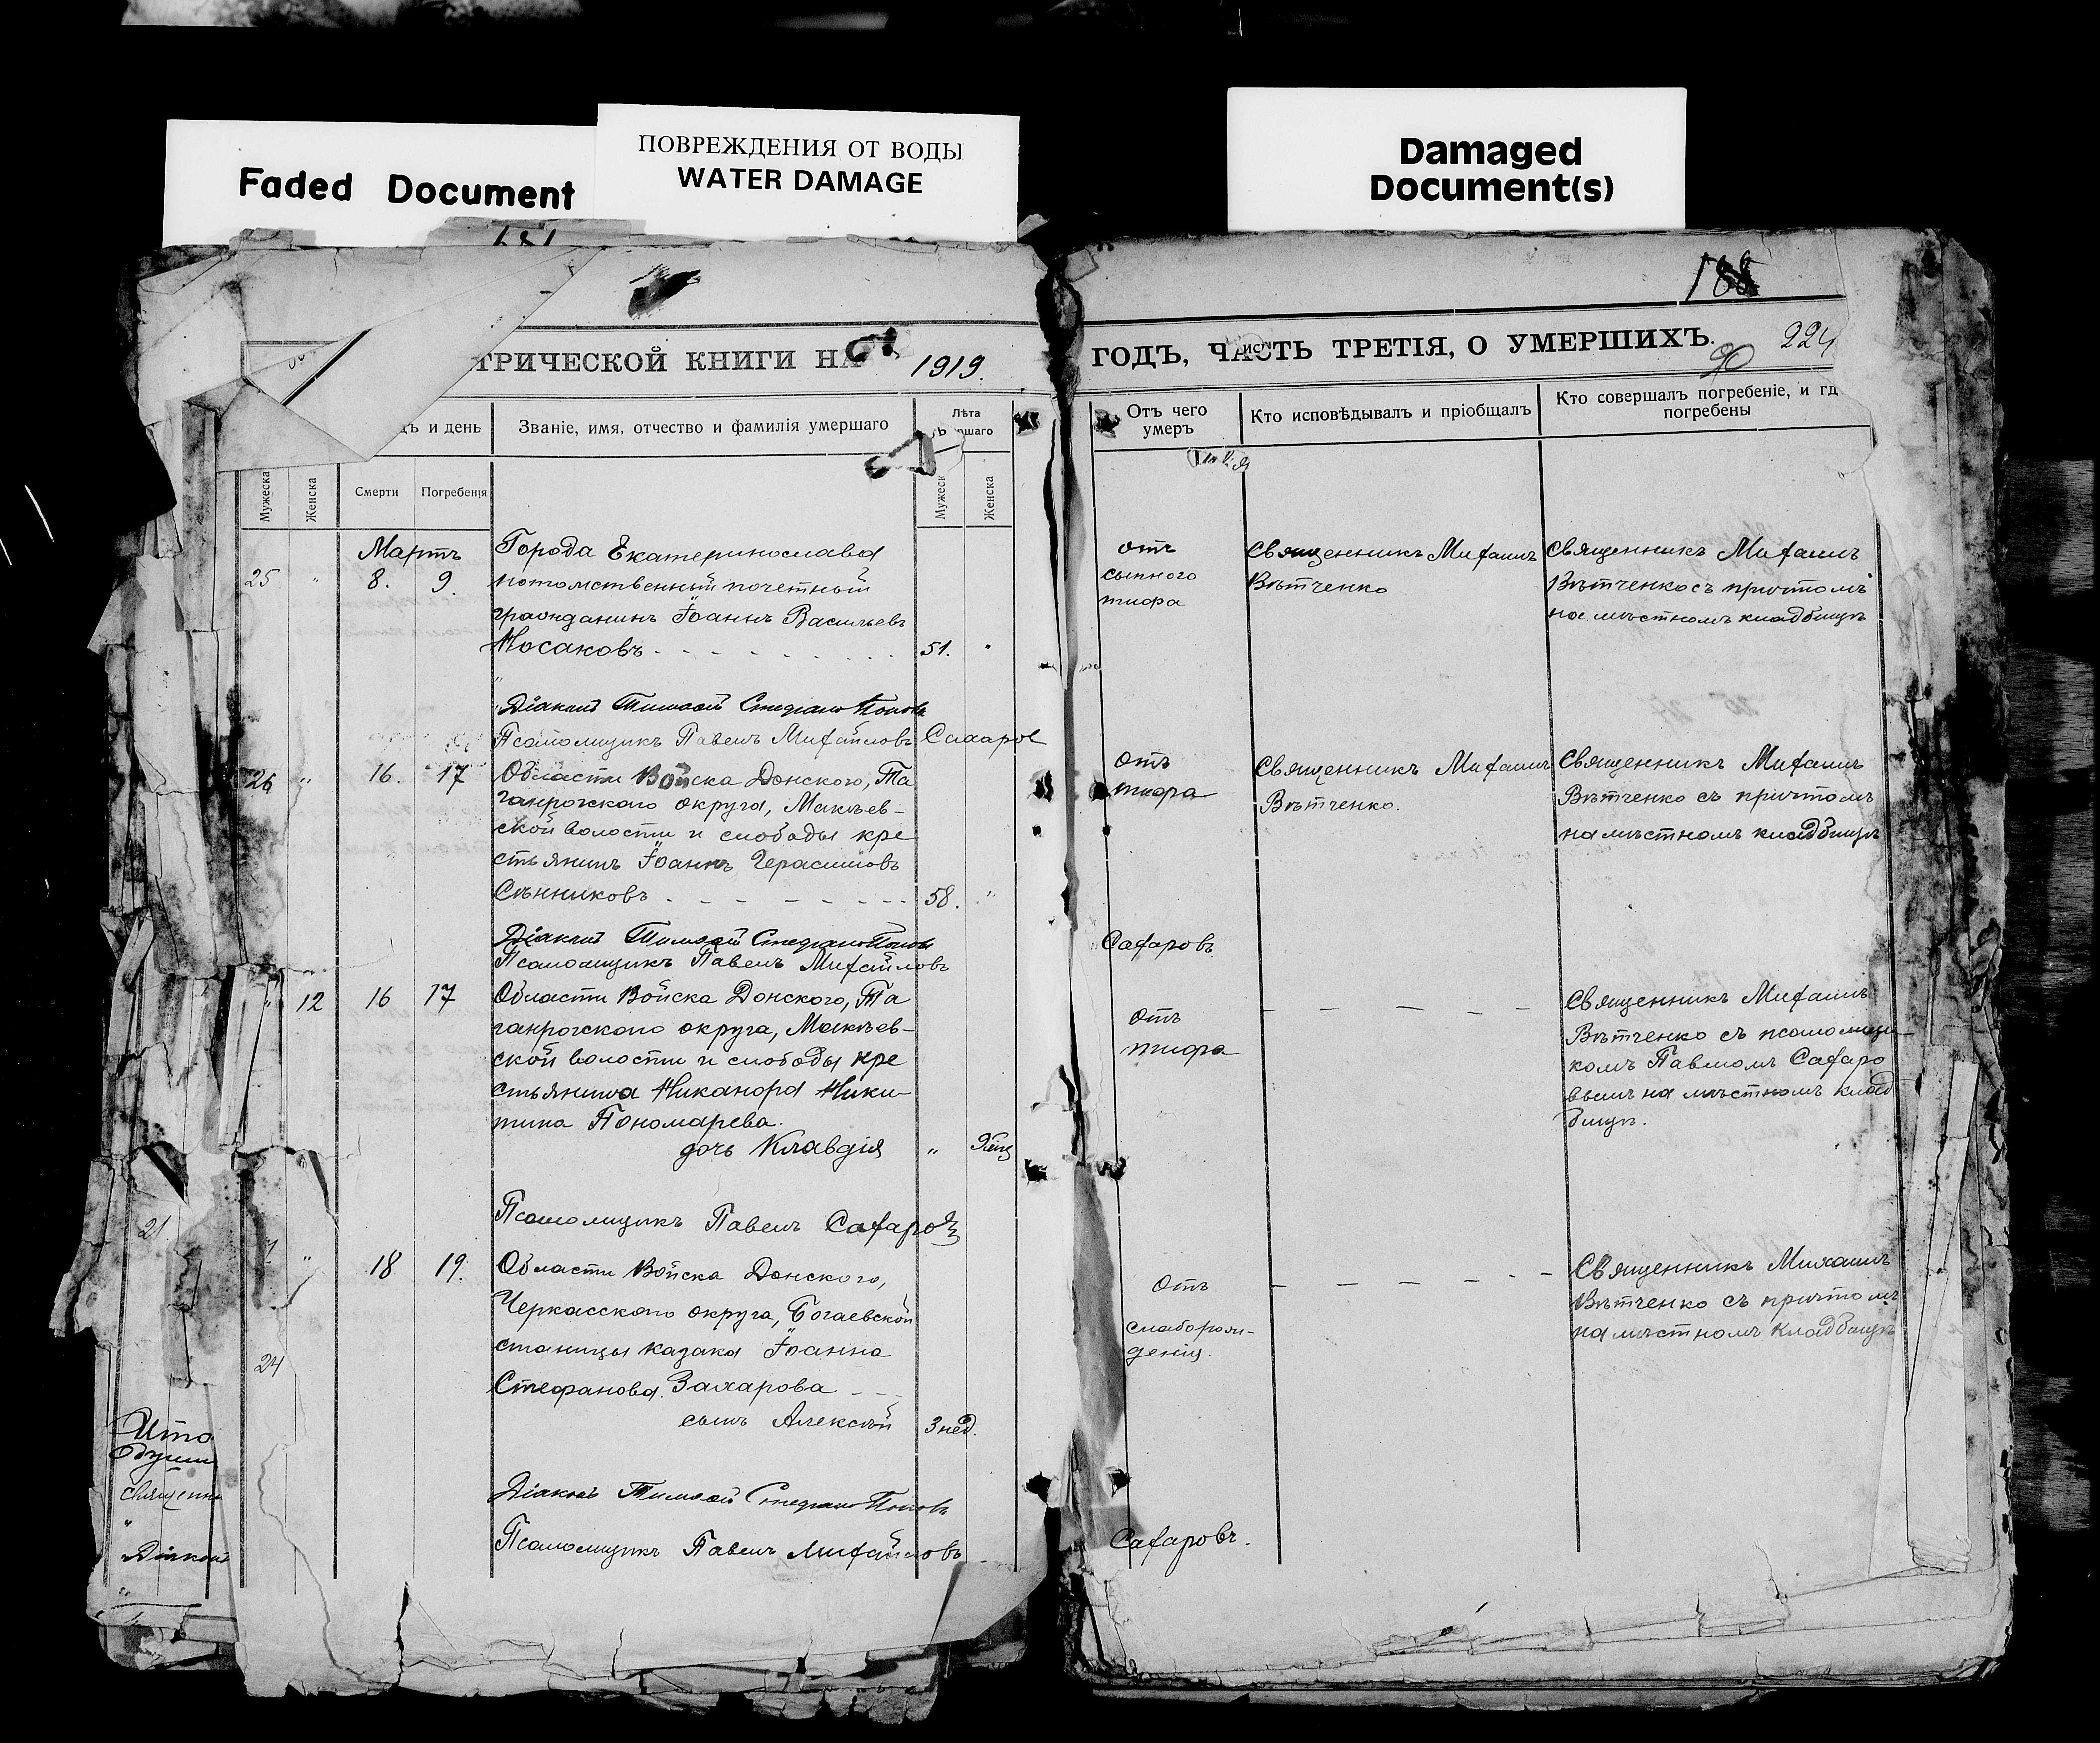 Faded Document
ПОВРЕЖДЕНИЯ ОТ ВОДЫ
WATER DAMAGE
Damaged
Document(s)
188
ТРИЧЕСКОЙ КНИГИ НА 1919 ГОДЪ, ЧАСТЬ ТРЕТІЯ, О УМЕРШИХЪ.
90
224
и день
Званіе, имя, отчество и фамилія умершаго
Лѣта
ршаго
Отъ чего
умеръ
Кто исповѣдывалъ и пріобщалъ
Кто совершалъ погребеніе, и гд
погребены
Мужеска
Женска
Смерти
Погребенія
Мужеск
Женска
Мартъ
25 " 8. 9.
Города Екатеринослава
потомственный почетный
гражданинъ Іоаннъ Васильевъ
Носаковъ - - - - - - - -
51. "
отъ
сыпного
тифа
Священникъ Михаилъ
Вѣтченко
Священникъ Михаилъ
Вѣтченко съ причтомъ
на мѣстномъ кладбищѣ
Діаконъ Тимофей Стефано Поповъ
Псаломщикъ Павелъ Михайловъ Сахаров
26 " 16. 17
Области Войска Донского, Та
ганрогскаго округа, Макѣев-
ской волости и слободы кре
стьянинъ Іоаннъ Герасимовъ
Сѣнниковъ - - - - - - - -
58. "
отъ
тифа
Священникъ Михаилъ
Вѣтченко.
Священникъ Михаилъ
Вѣтченко съ причтомъ
на мѣстномъ кладбищѣ
Діаконъ Тимофей Стефано Поповъ
Псаломщикъ Павелъ Михайловъ
Сахаровъ
" 12 16 17
Области Войска Донского, Та
ганрогскаго округа, Макѣев-
ской волости и слободы кре
стьянина Никанора Ники-
тина Пономарева.
дочь Клавдія
"
отъ
тифа
- - - - -
Священникъ Михаилъ
Вѣтченко съ псаломщи-
комъ Павломъ Сахаро
вымъ на мѣстномъ клад
бищѣ.
Псаломщикъ Павелъ Сахаровъ
21
" 18 19.
Области Войска Донского,
Черкасскаго округа, Богаевской
станицы казака Іоанна
Стефанова Захарова - - -
сынъ Алексѣй
3 нед.
отъ
слаборож-
денія.
- - - - - -
Священникъ Михаилъ
Вѣтченко съ причтомъ
на мѣстномъ кладбищѣ
24
Ито
Священни
"
Діаконъ
"
Діаконъ Тимофей Стефано Поповъ
Псаломщикъ Павелъ Михайловъ
Сахаровъ.